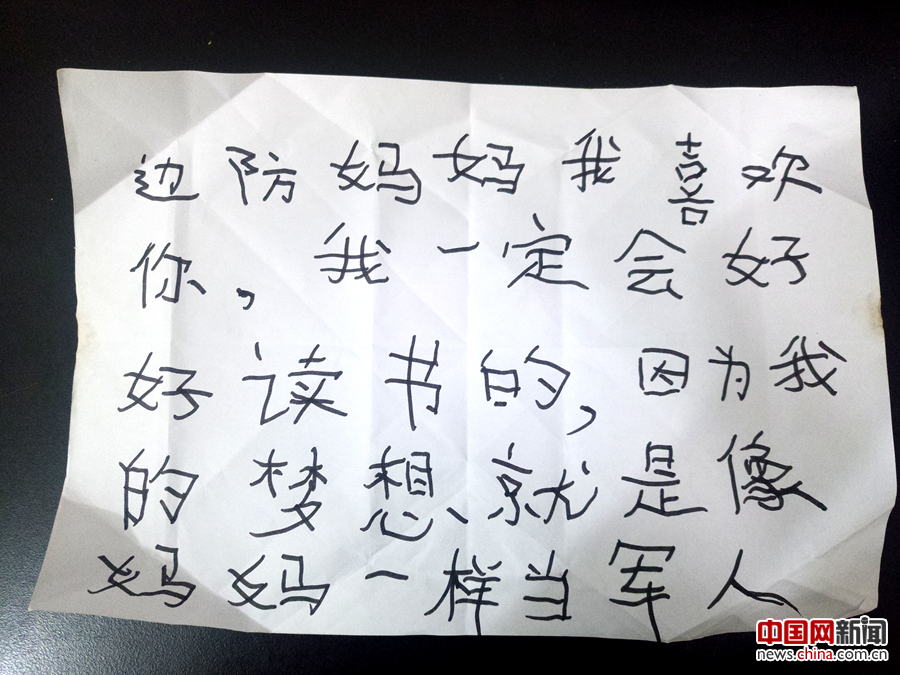 边防妈妈我喜欢
你,我一定会好
好读书的,因为我
的梦想、就是像
妈妈一样当军人
中国网新闻
news.china.com.cn